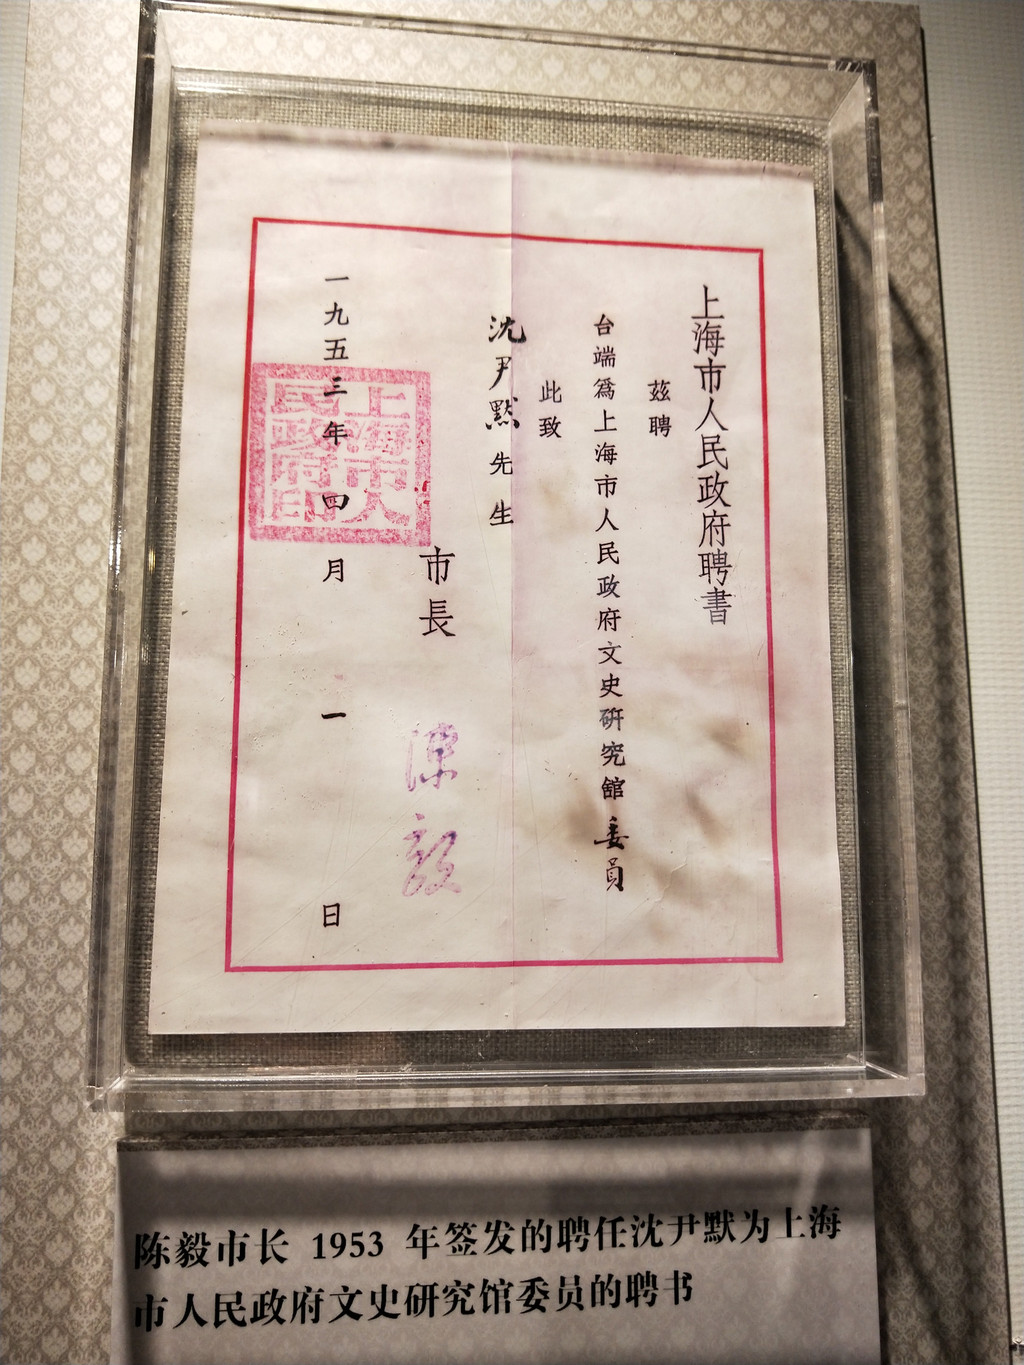 上海市人民政府聘書
茲聘
台端爲上海市人民政府文史研究館委員
此致
沈尹默先生
市長 陳毅
一九五三年四月一日
上海市人民政府印
陈毅市长 1953 年签发的聘任沈尹默为上海
市人民政府文史研究馆委员的聘书